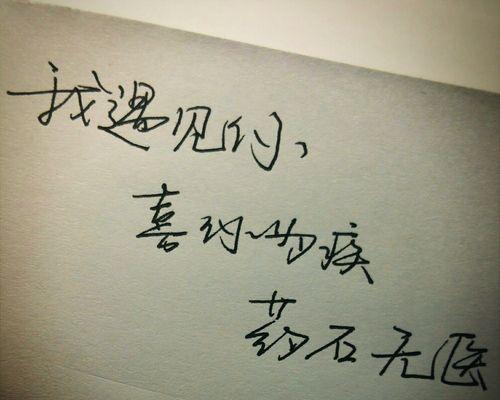 我遇见你，
喜你疾
药石无医